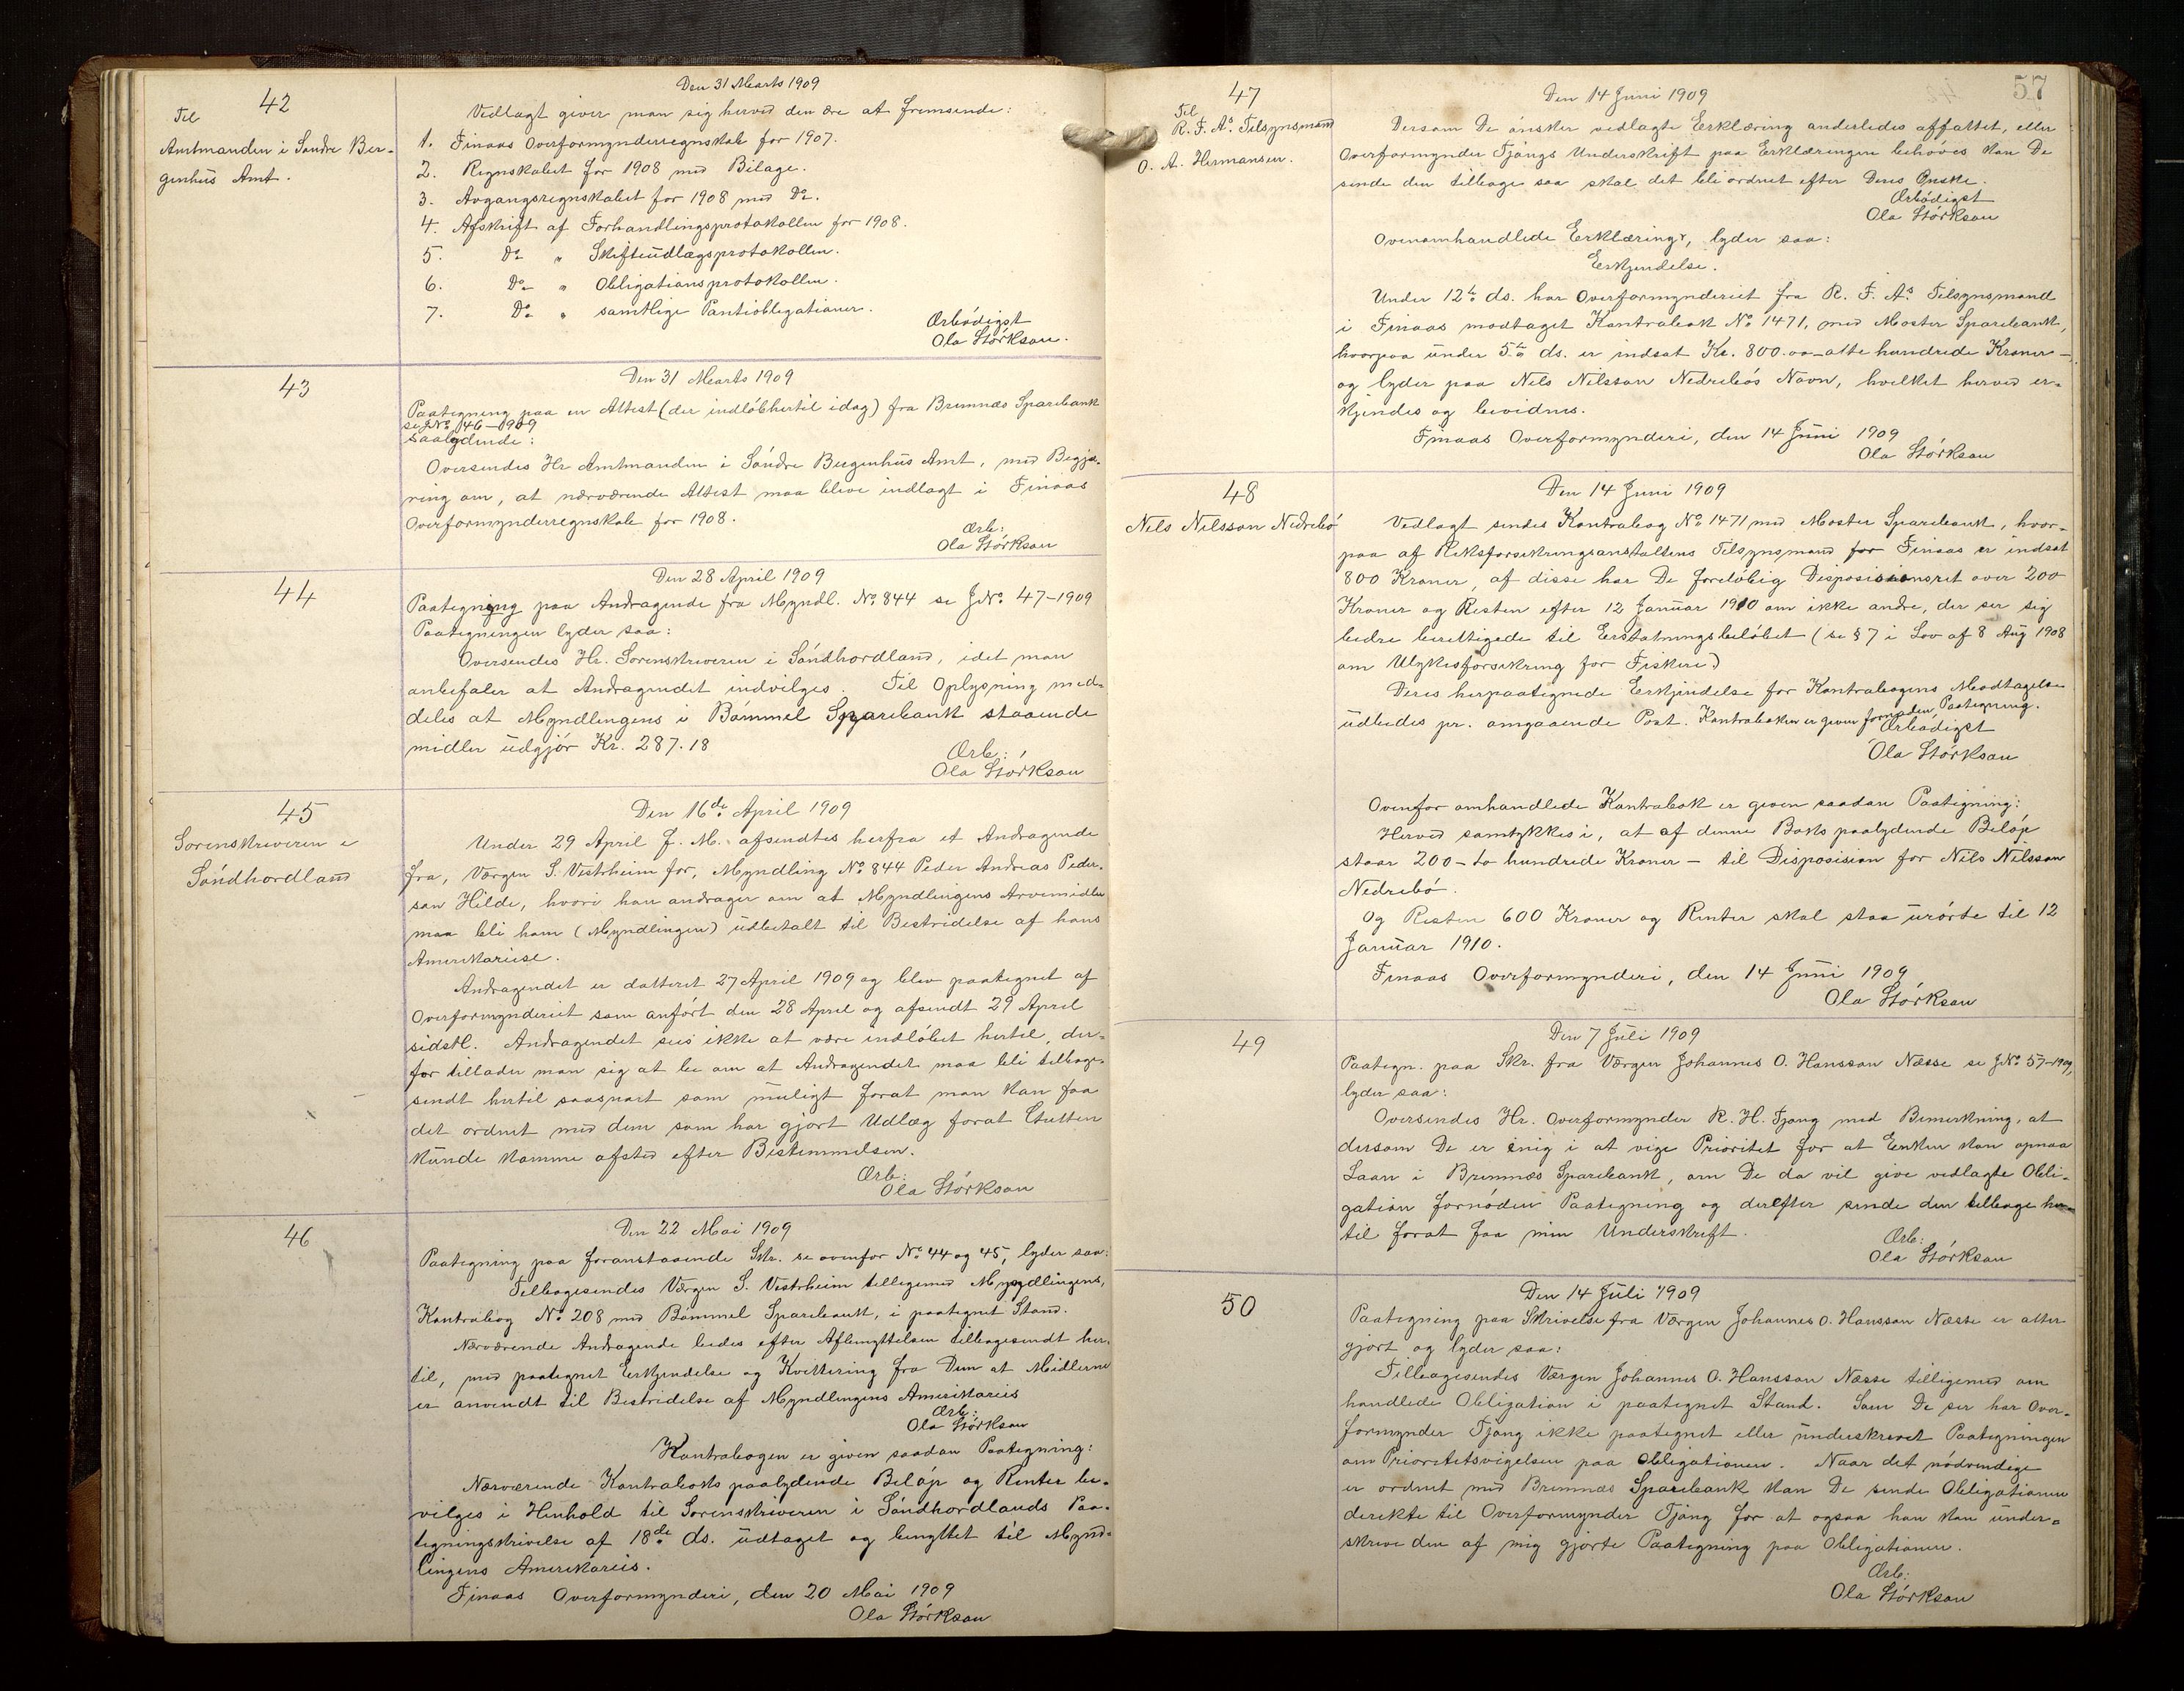 42
Til
Amtmanden i Søndre Ber-
genhus Amt.
Den 31 Marts 1909
Vedlagt giver man sig herved den ære at fremsende:
1. Finaas Overformynderregnskab for 1907.
2. Regnskabet for 1908 med Bilage.
3. Avgangsregnskabet for 1908 med Do.
4. Afskrift af Forhandlingsprotokollen for 1908.
5. Do " Skifteudlægsprotokollen.
6. Do " Obligationsprotokollen.
7. Do " samtlige Panteobligationer.
Ærbödigst
Ola Störkson.
43
Den 31 Marts 1909
Paategning paa en Attest (der indlöb hertil idag) fra Bremnæs Sparebank
se JNo. 46-1909
saalydende:
Oversendes Hr Amtmanden i Söndre Bergenhus Amt, med Begjæ-
ring om, at nærværende Attest maa blive indlagt i Finaas
Overformynderregnskab for 1908.
Ærb:
Ola Störkson
44
Den 28 April 1909
Paategning paa Andragende fra Myndl. No. 844 se JNo. 47-1909
Paategningen lyder saa:
Oversendes Hr. Sorenskriveren i Söndhordland, idet man
anbefaler at Andragendet indvilges. Til Oplysning med-
deles at Myndlingens i Bömmel Sparebank staaende
midler udgjör Kr. 287.18
Ærb:
Ola Störkson
45
Sorenskriveren i
Söndhordland
Den 16de April 1909
Under 29 April f. M. afsendtes herfra et Andragende
fra, Værgen S. Vestrheim for, Myndling No. 844 Peder Andreas Peder-
son Hilde, hvori han andrager om at Myndlingens Arvemidler
maa bli ham (Myndlingen) udbetalt til Bestridelse af hans
Amerikareise.
Andragendet er datteret 27 April 1909 og blev paategnet af
Overformynderiet som anfört den 28 April og afsendt 29 April
sidstl. Andragendet sees ikke at være indlöbet hertil, der-
for tillader man sig at be om at Andragendet maa bli tilbage-
sendt hertil saasnart som muligt forat man kan faa
det ordnet med dem som har gjort Udlæg forat Gutten
kunde komme afsted efter Bestemmelsen.
Ærb:
Ola Störkson
46
Den 22 Mai 1909
Paategning paa foranstaaende Skr. se ovenfor No. 44 og 45, lyder saa:
Tilbagesendes Værgen S. Vestrheim tilligemed Myndlingens,
Kontrabog No. 208 med Bömmel Sparebank, i paategnet Stand.
Nærværende Andragende bedes efter Afbenyttelsen tilbagesendt her-
til, med paategnet Erkjendelse og Kvittering fra Dem at Midlerne
er anvendt til Bestridelse af Myndlingens Amerikareis
Ærb:
Ola Störkson
Kontrabogen er given saadan Paategning:
Nærværende Kontraboks paalydende Belöp og Renter be-
vilges i Henhold til Sorenskriveren i Söndhordlands Paa-
tegningsskrivelse af 18de ds. udtaget og benyttet til Mynd-
lingens Amerikareis.
Finaas Overformynderi, den 20 Mai 1909
Ola Störkson
57
47
Til
R. F. As. Tilsynsmand
O. A. Hermansen.
Den 14 Juni 1909
Dersom De önsker vedlagte Erklæring anderledes affattet, eller
Overformynder Tjongs Underskrift paa Erklæringen behöves kan De
sende den tilbage saa skal det bli ordnet efter Deres Önske.
Ærbödigst
Ola Störkson
Ovenomhandlede Erklæring, lyder saa:
Erkjendelse.
Under 12te ds. har Overformynderiet fra R. F. As. Tilsynsmand
i Finaas modtaget Kontrabok No. 1471, med Moster Sparebank,
hvorpaa under 5te ds. er indsat Kr. 800.oo - otte hundrede Kroner -
og lyder paa Nels Nilsson Nedrebös Navn, hvilket herved er-
kjendes og bevidnes.
Finaas Overformynderi, den 14 Juni 1909
Ola Störkson
48
Nels Nilsson Nedrebö
Den 14 Juni 1909
Vedlagt sendes Kontrabog No. 1471 med Moster Sparebank, hvor-
paa af Riksforsikringsanstaltens Tilsynsmand for Finaas er indsat
800 Kroner, af disse har De foreløbig Disposisionsret over 200
Kroner og Resten efter 12 Januar 1910 om ikke andre, der ser sig
bedre berettigede til Erstatningsbelöbet (se § 7 i Lov af 8 Aug 1908
om Ulykesforsikring for Fiskere.)
Deres herpaategnede Erkjendelse for Kontrabogens Modtagelse
udbedes pr. omgaaende Post. Kontraboken er given fornöden Paategning.
Ærbödigst
Ola Störkson
Ovenfor omhandlede Kontrabok er given saadan Paategning:
Herved samtykkes i, at af denne Boks paalydende Belöp
staar 200 - to hundrede Kroner - til Disposision for Nils Nilsson
Nedrebö.
Og Resten 600 Kroner og Renter skal staa urörte til 12
Januar 1910.
Finaas Overformynderi, den 14 Juni 1909
Ola Störkson
49
Den 7 Juli 1909
Paategn. paa Skr. fra Værgen Johannes O. Hansson Næsse se JNo. 57-1909,
lyder saa:
Oversendes Hr. Overformynder R. H. Tjong med Bemerkning, at
dersom De er enig i at vige Prioritet for at Enken kan opnaa
Laan i Bremnæs Sparebank, om De da vil give vedlagte Obli-
gation fornöden Paategning og derefter sende den tilbage her-
til forat faa min Underskrift.
Ærb:
Ola Störkson
50
Den 14 Juli 1909
Paategning paa Skrivelse fra Værgen Johannes O. Hansson Næsse er atter
gjort og lyder saa:
Tilbagesendes Værgen Johannes O. Hansson Næsse tilligemed om
handlede Obligation i paategnet Stand. Som De ser har Over-
formynder Tjong ikke paategnet eller underskrevet Paategningen
om Prioritetsvigelsen paa Obligationen. Naar det nödvendige
er ordnet med Bremnæs Sparebank kan De sende Obligationen
derekte til Overformynder Tjong for at ogsaa han kan under-
skrive den af mig gjorte Paategning paa Obligationen.
Ærb:
Ola Störkson